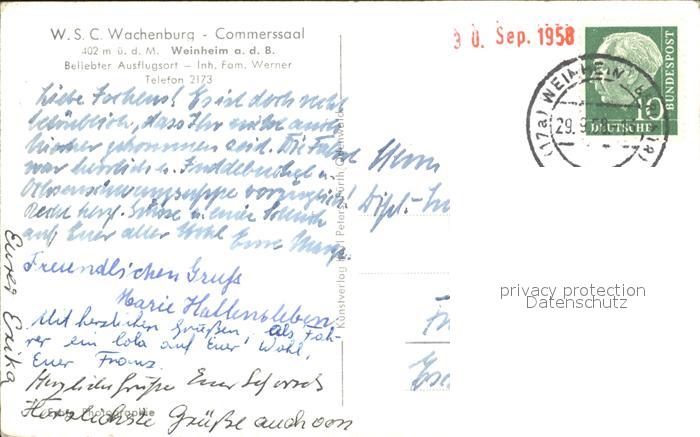 W. S. C. Wachenburg - Commerssaal
402 m ü. d. M. Weinheim a. d. B.
Beliebter Ausflugsort — Inh. Fam. Werner
Telefon 2173
30. Sep. 1958
(17a) WEINHEIM
29.9.58
10
DEUTSCHE
BUNDESPOST
Liebe Es ist doch recht
betrüblich, dass Ihr nicht auch
hierher gekommen seid. Die Fahrt
war herrlich u.
Ochsenschwanzsuppe vorzüglich!
Recht herzl. Grüsse u. einen Schluck
auf Euer aller Wohl Eure
Freundlichen Gruss
Marie Hallensleben
Mit herzlichen Grüßen, als Fah-
rer ein Cola auf Euer Wohl,
Euer Franz
Herzliche Grüße Euer
Herzlichste Grüße auch von
Eurer Erika
Echte Photographie
Kunstverlag Karl Peters, Fürth, Odenwald
Herrn
Dipl.-In
privacy protection
Datenschutz